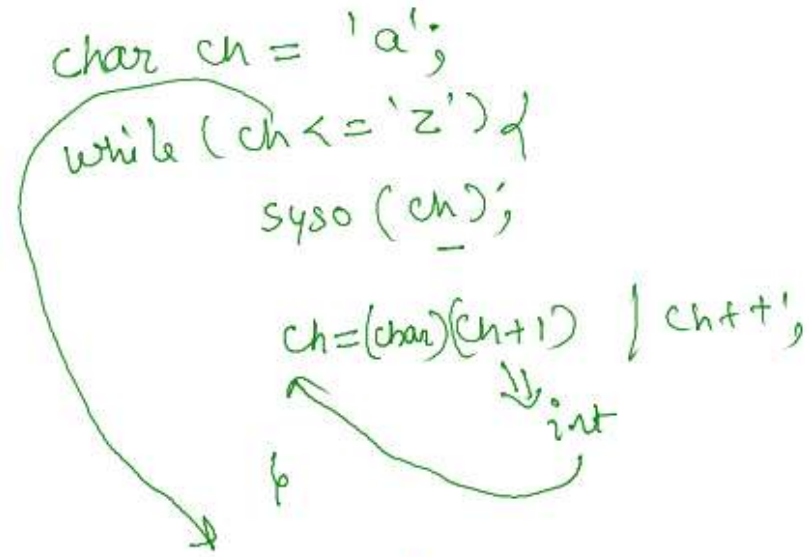 char ch = 'a';
while (ch <= 'z') {
syso (ch);
ch=(char)(ch+1) / ch++;
int
}